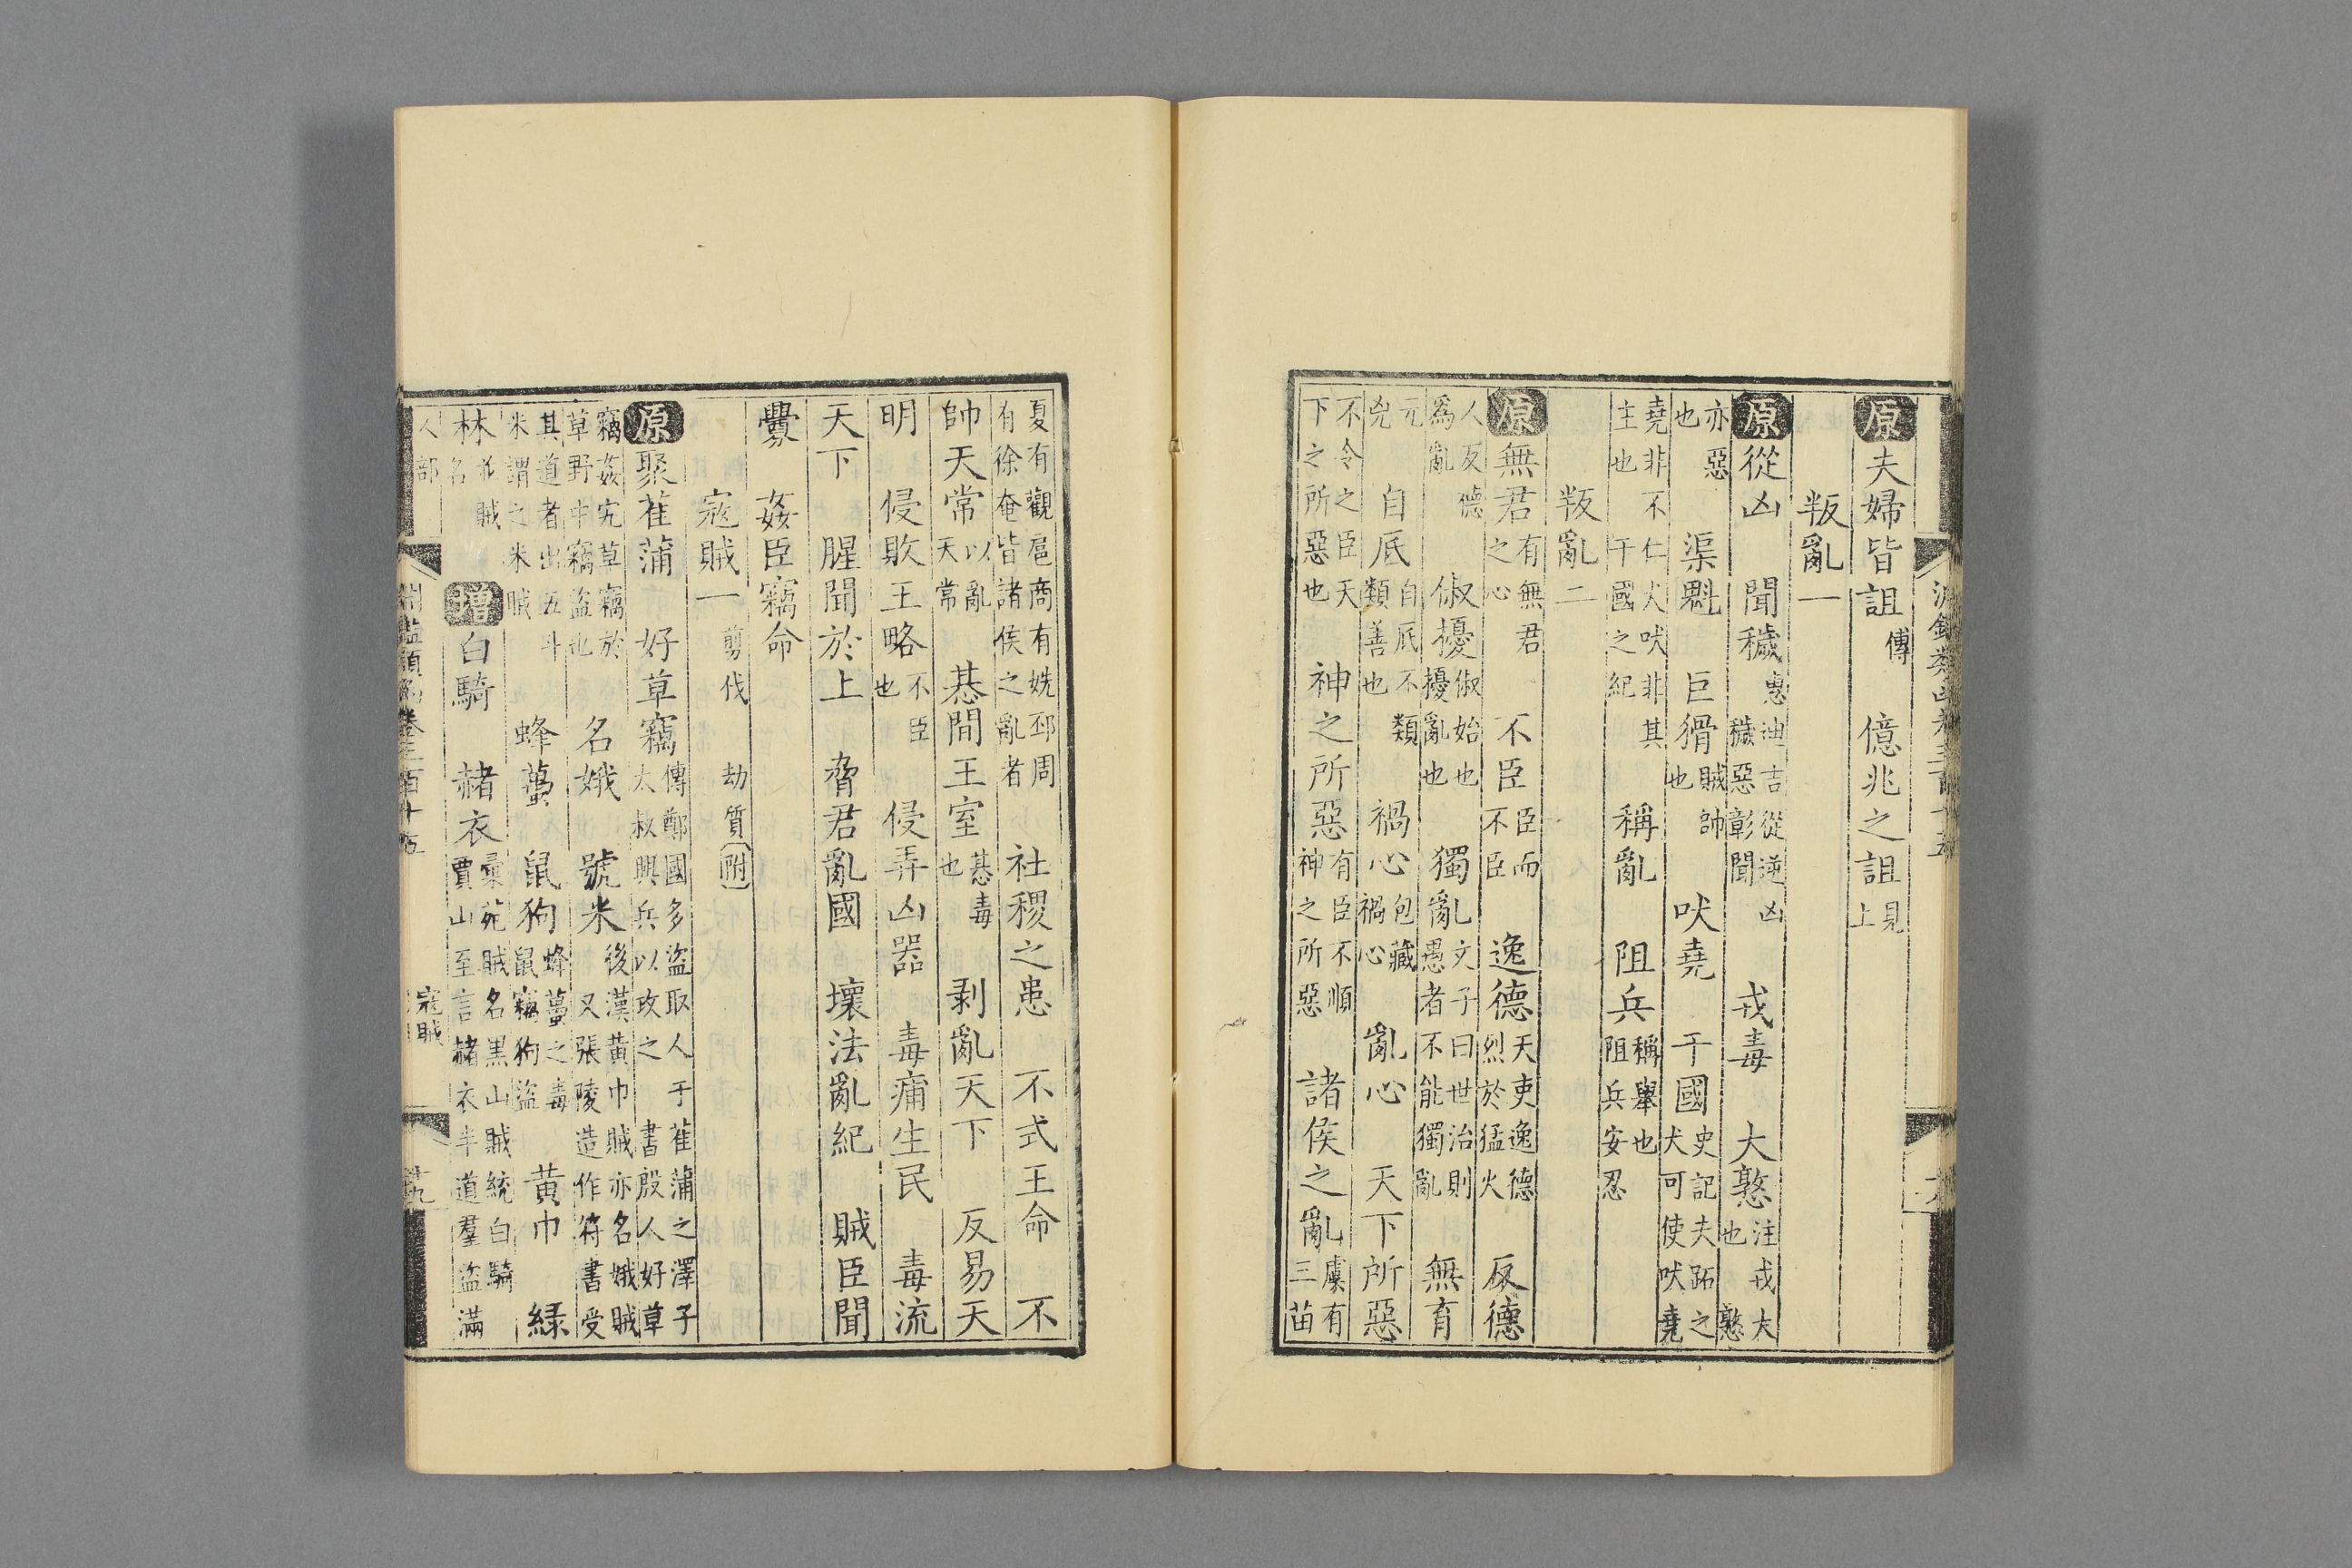 淵鑑類函卷三百十五
原夫婦皆詛傳 億兆之詛見上
叛亂一
原從凶 聞穢惠迪吉從逆凶穢惡彰聞 戎毒 大憝注戎大也憝
亦惡也 渠魁 巨猾賊帥也 吠堯 干國史記夫跖之犬可使吠堯
堯非不仁犬吠非其主也干國之紀 稱亂 阻兵稱舉也阻兵安忍
叛亂二
原無君有無君之心 不臣臣而不臣 逸德天吏逸德烈於猛火 反德
人反德為亂 俶擾俶始也擾亂也 獨亂文子曰世治則愚者不能獨亂 無育
元兇 自底自底不類類善也 禍心包藏禍心 亂心 天下所惡
不令之臣天下之所惡也 神之所惡有臣不順神之所惡 諸侯之亂虞有三苗
夏有觀扈商有姺邳周有徐奄皆諸侯之亂者 社稷之患 不式王命 不
帥天常以亂天常 惎間王室惎毒也 剥亂天下 反易天
明 侵敗王略不臣也 侵弄凶器 毒痡生民 毒流
天下 腥聞於上 脅君亂國 壞法亂紀 賊臣聞
釁 姦臣竊命
寇賊一 剪伐 劫質附
原聚萑蒲 好草竊傳鄭國多盜取人于萑蒲之澤子太叔興兵以攻之 書殷人好草
竊姦宄草竊於草野中竊盜也 名娥 號米後漢黃巾賊亦名娥賊又張陵造作符書受
其道者出五斗米謂之米賊 蜂蠆 鼠狗蜂蠆之毒鼠竊狗盜 黃巾 緑
林並賊名 增白騎 赭衣彙苑賊名黑山賊統白騎賈山至言赭衣半道羣盜滿
人部 淵鑑類函卷三百十五 寇賊 十九